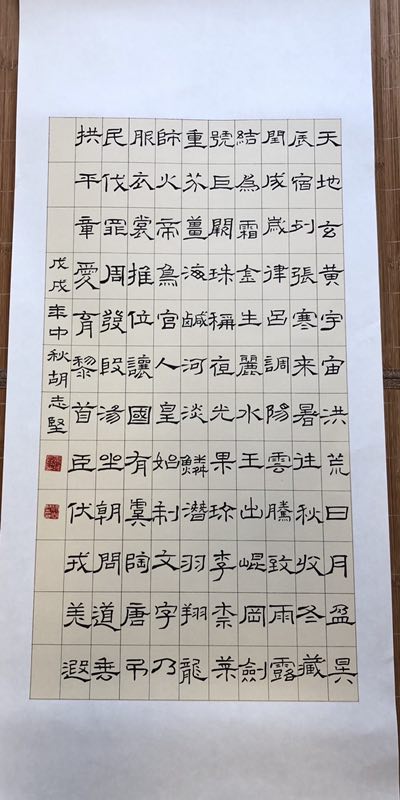 天地玄黃宇宙洪荒日月盈昃
辰宿列張寒来暑往秋收冬藏
閏成歲律呂調陽雲騰致雨露
結為霜金生麗水玉出崐岡劍
號巨闕珠稱夜光果珍李柰菜
重芥薑海鹹河淡鱗潛羽翔龍
師火帝鳥官人皇始制文字乃
服衣裳推位讓國有虞陶唐弔
民伐罪周發殷湯坐朝問道垂
拱平章愛育黎首臣伏戎羌遐
戊戌年中秋胡志堅